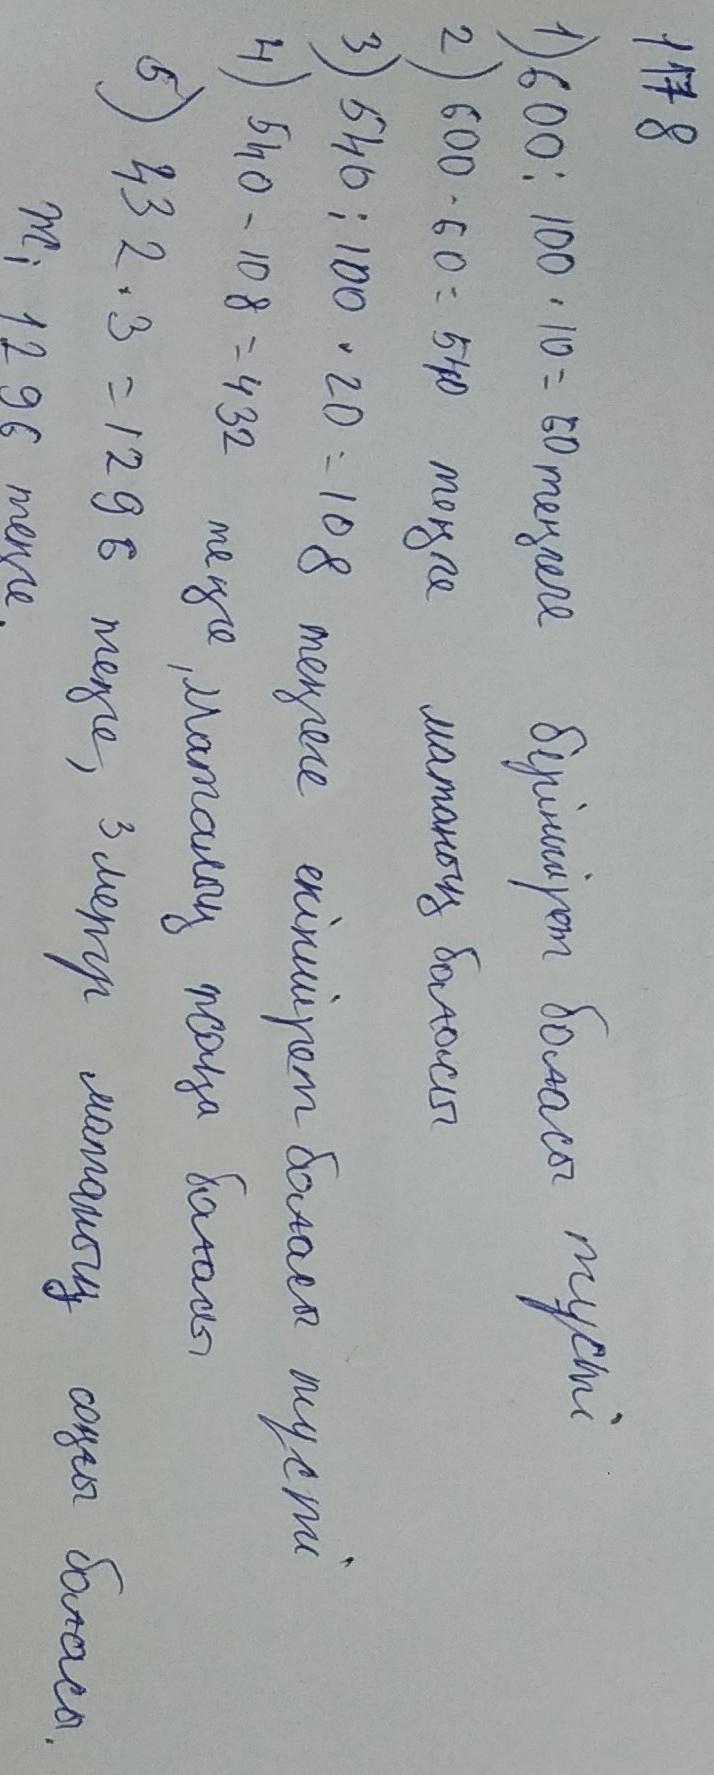 1178
1) 600 : 100 · 10 = 60 теңгеге біріншірет бағасы түсті
2) 600 - 60 = 540 теңге матаның бағасы
3) 540 : 100 · 20 = 108 теңгеге екіншірет бағасы түсті
4) 540 - 108 = 432 теңге, Матаның жаңа бағасы
5) 432 · 3 = 1296 теңге, 3 метр матаның соңғы бағасы.
Ж; 1296 теңге.